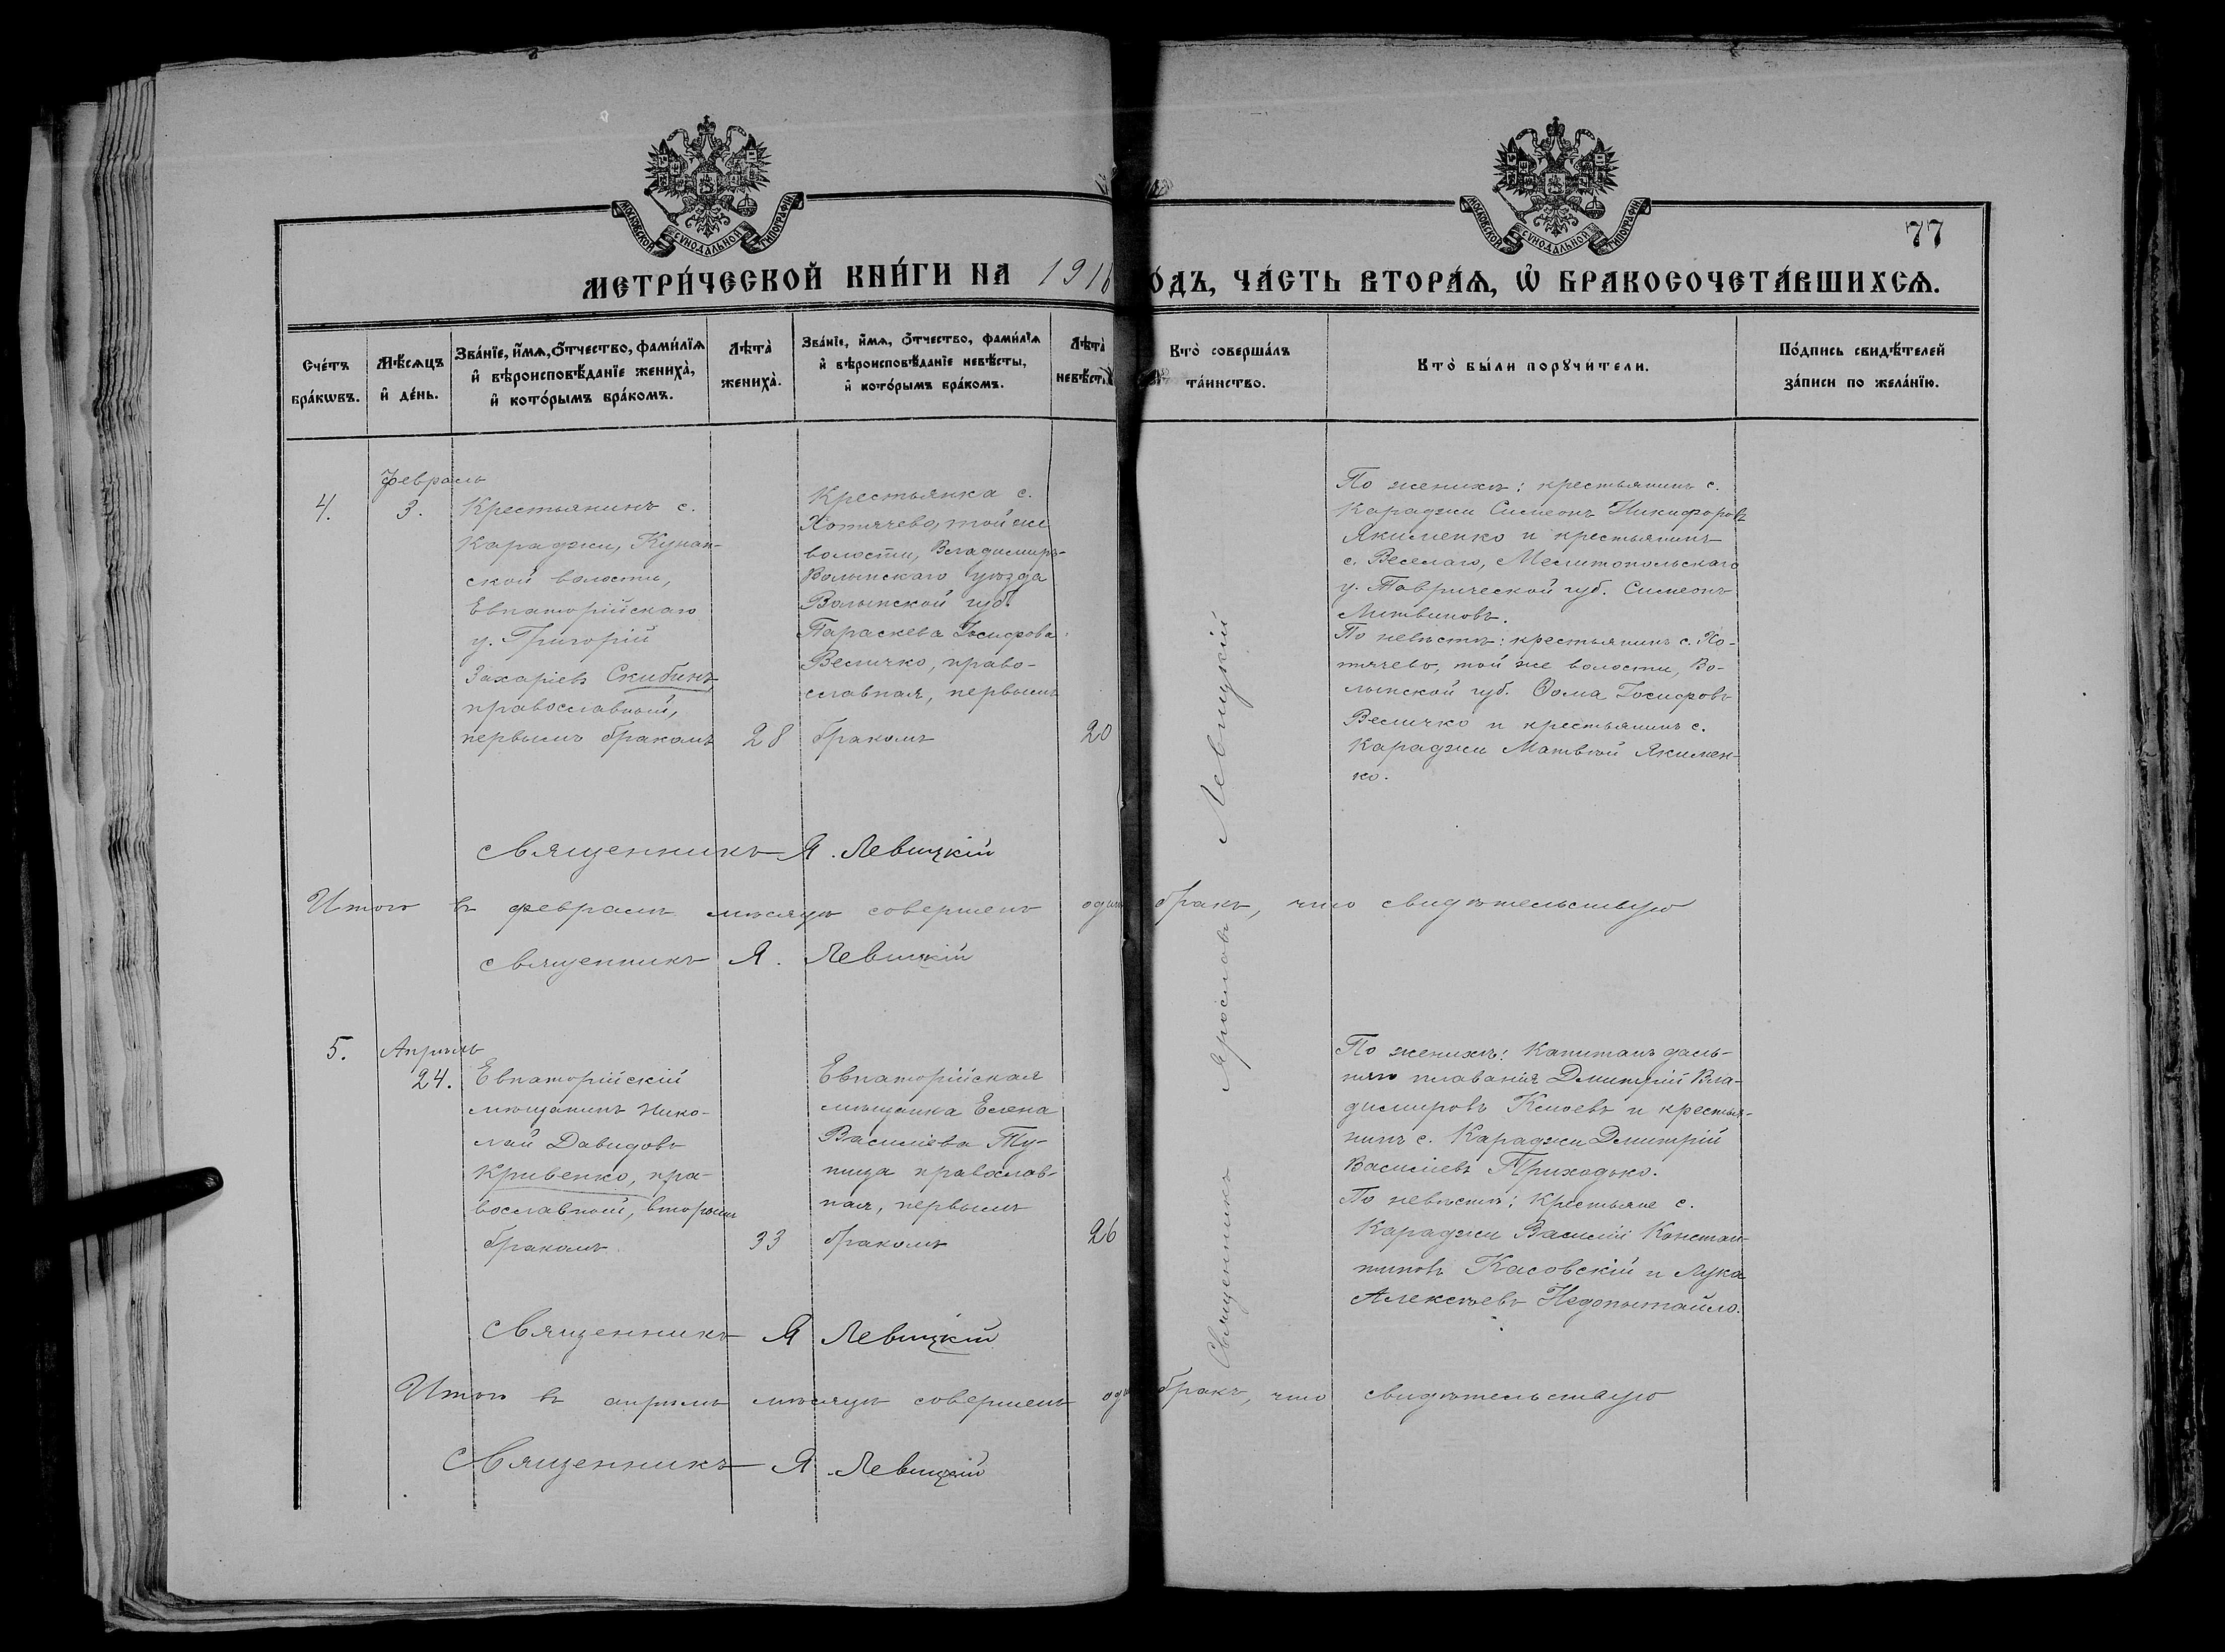 МОСКОВСКОЙ СУНОДАЛЬНОЙ ТИПОГРАФІИ
МОСКОВСКОЙ СУНОДАЛЬНОЙ ТИПОГРАФІИ
77
МЕТРИ́ЧЕСКОЙ КНИ́ГИ НА 1916
О́ДЪ, ЧА́СТЬ ВТОРА́Ѧ, Ѡ҆ БРАКОСОЧЕТА́ВШИХСѦ.
Сче́тъ
бра́кѡвъ.
Мѣ́сѧцъ
и҆ де́нь.
Зва́нїе, и҆́мѧ, о҆́тчество, фами́лїѧ
и҆ вѣроисповѣ́данїе жениха̀,
и҆ кото́рымъ бра́комъ.
Лѣта̀
жениха̀.
Зва́нїе, и҆́мѧ, о҆́тчество, фами́лїѧ
и҆ вѣроисповѣ́данїе невѣ́сты,
и҆ кото́рымъ бра́комъ.
Лѣта̀
невѣ́ст
Кто̀ соверша́лъ
та́инство.
Кто̀ бы́ли порꙋчи́тели.
По́дпись свидѣ́телей
за́писи по жела́нїю.
4.
Февраль
3.
Крестьянинъ с.
Караджи, Кунан-
ской волости,
Евпаторійскаго
у. Григорій
Захаріевъ Скибинъ,
православный,
первымъ бракомъ
28
Крестьянка с.
Хотячево, той же
волости, Владимиръ-
Волынскаго уѣзда
Волынской губ.
Параскева Іосифова
Величко, право-
славная, первымъ
бракомъ
20
Священникъ Ярославъ Левицкій
По женихѣ: крестьянинъ с.
Караджи Симеонъ Никифоровъ
Якименко и крестьянинъ
с. Веселаго, Мелитопольскаго
у. Таврической губ. Симеонъ
Литвиновъ.
По невѣстѣ: крестьянинъ с. Хо-
тячево, той же волости, Во-
лынской губ. Ѳома Іосифовъ
Величко и крестьянинъ с.
Караджи Матвѣй Якимен-
ко.
Священникъ Я. Левицкій
Итого въ февралѣ мѣсяцѣ совершенъ одинъ бракъ, что свидѣтельствую
священникъ Я. Левицкій
5.
Апрѣль
24.
Евпаторійскій
мѣщанинъ Нико-
лай Давидовъ
Кривенко, пра-
вославный, вторымъ
бракомъ
33
Евпаторійская
мѣщанка Елена
Василіева Ту-
пица православ-
ная, первымъ
бракомъ
26
По женихѣ: Капитанъ даль-
няго плаванія Дмитрій Вла-
димировъ и крестья-
нинъ с. Караджи Дмитрій
Василіевъ Приходько.
По невѣстѣ: Крестьяне с.
Караджи Василій Констан-
тиновъ Касовскій и Лука
Алексѣевъ Недопытайло.
Священникъ Я Левицкій
Итого въ апрѣлѣ мѣсяцѣ совершенъ оди бракъ, что свидѣтельствую
Священникъ Я. Левицкій